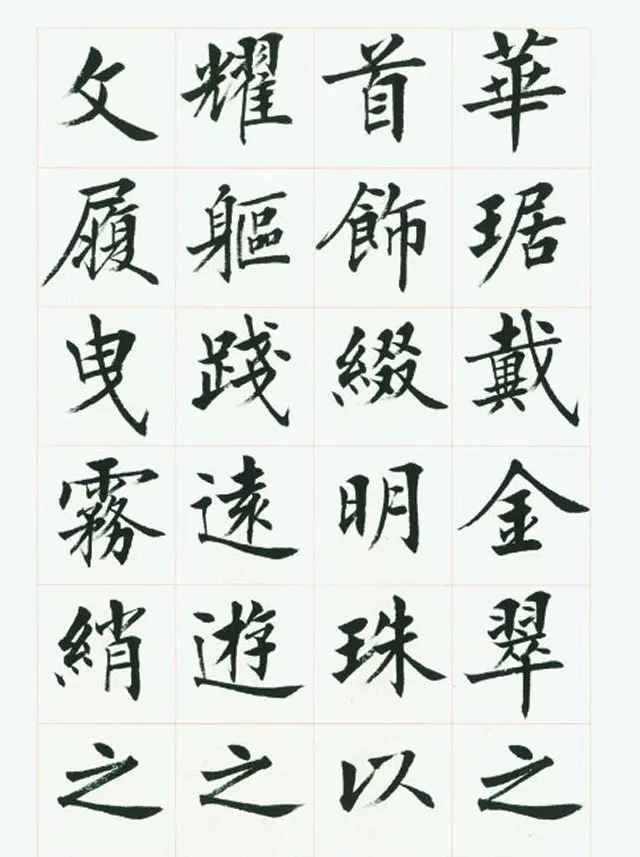 華琚戴金翠之
首飾綴明珠以
耀軀踐遠遊之
文履曳霧綃之